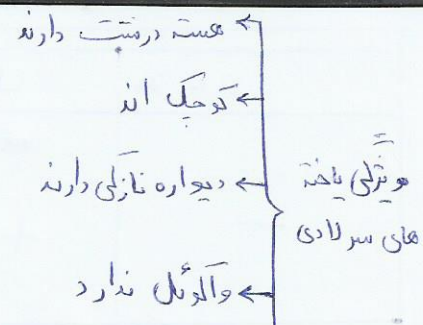 ویژگی یاخته
های سرلادی
هسته درشت دارند
کوچک اند
دیواره نازکی دارند
واکوئل ندارد